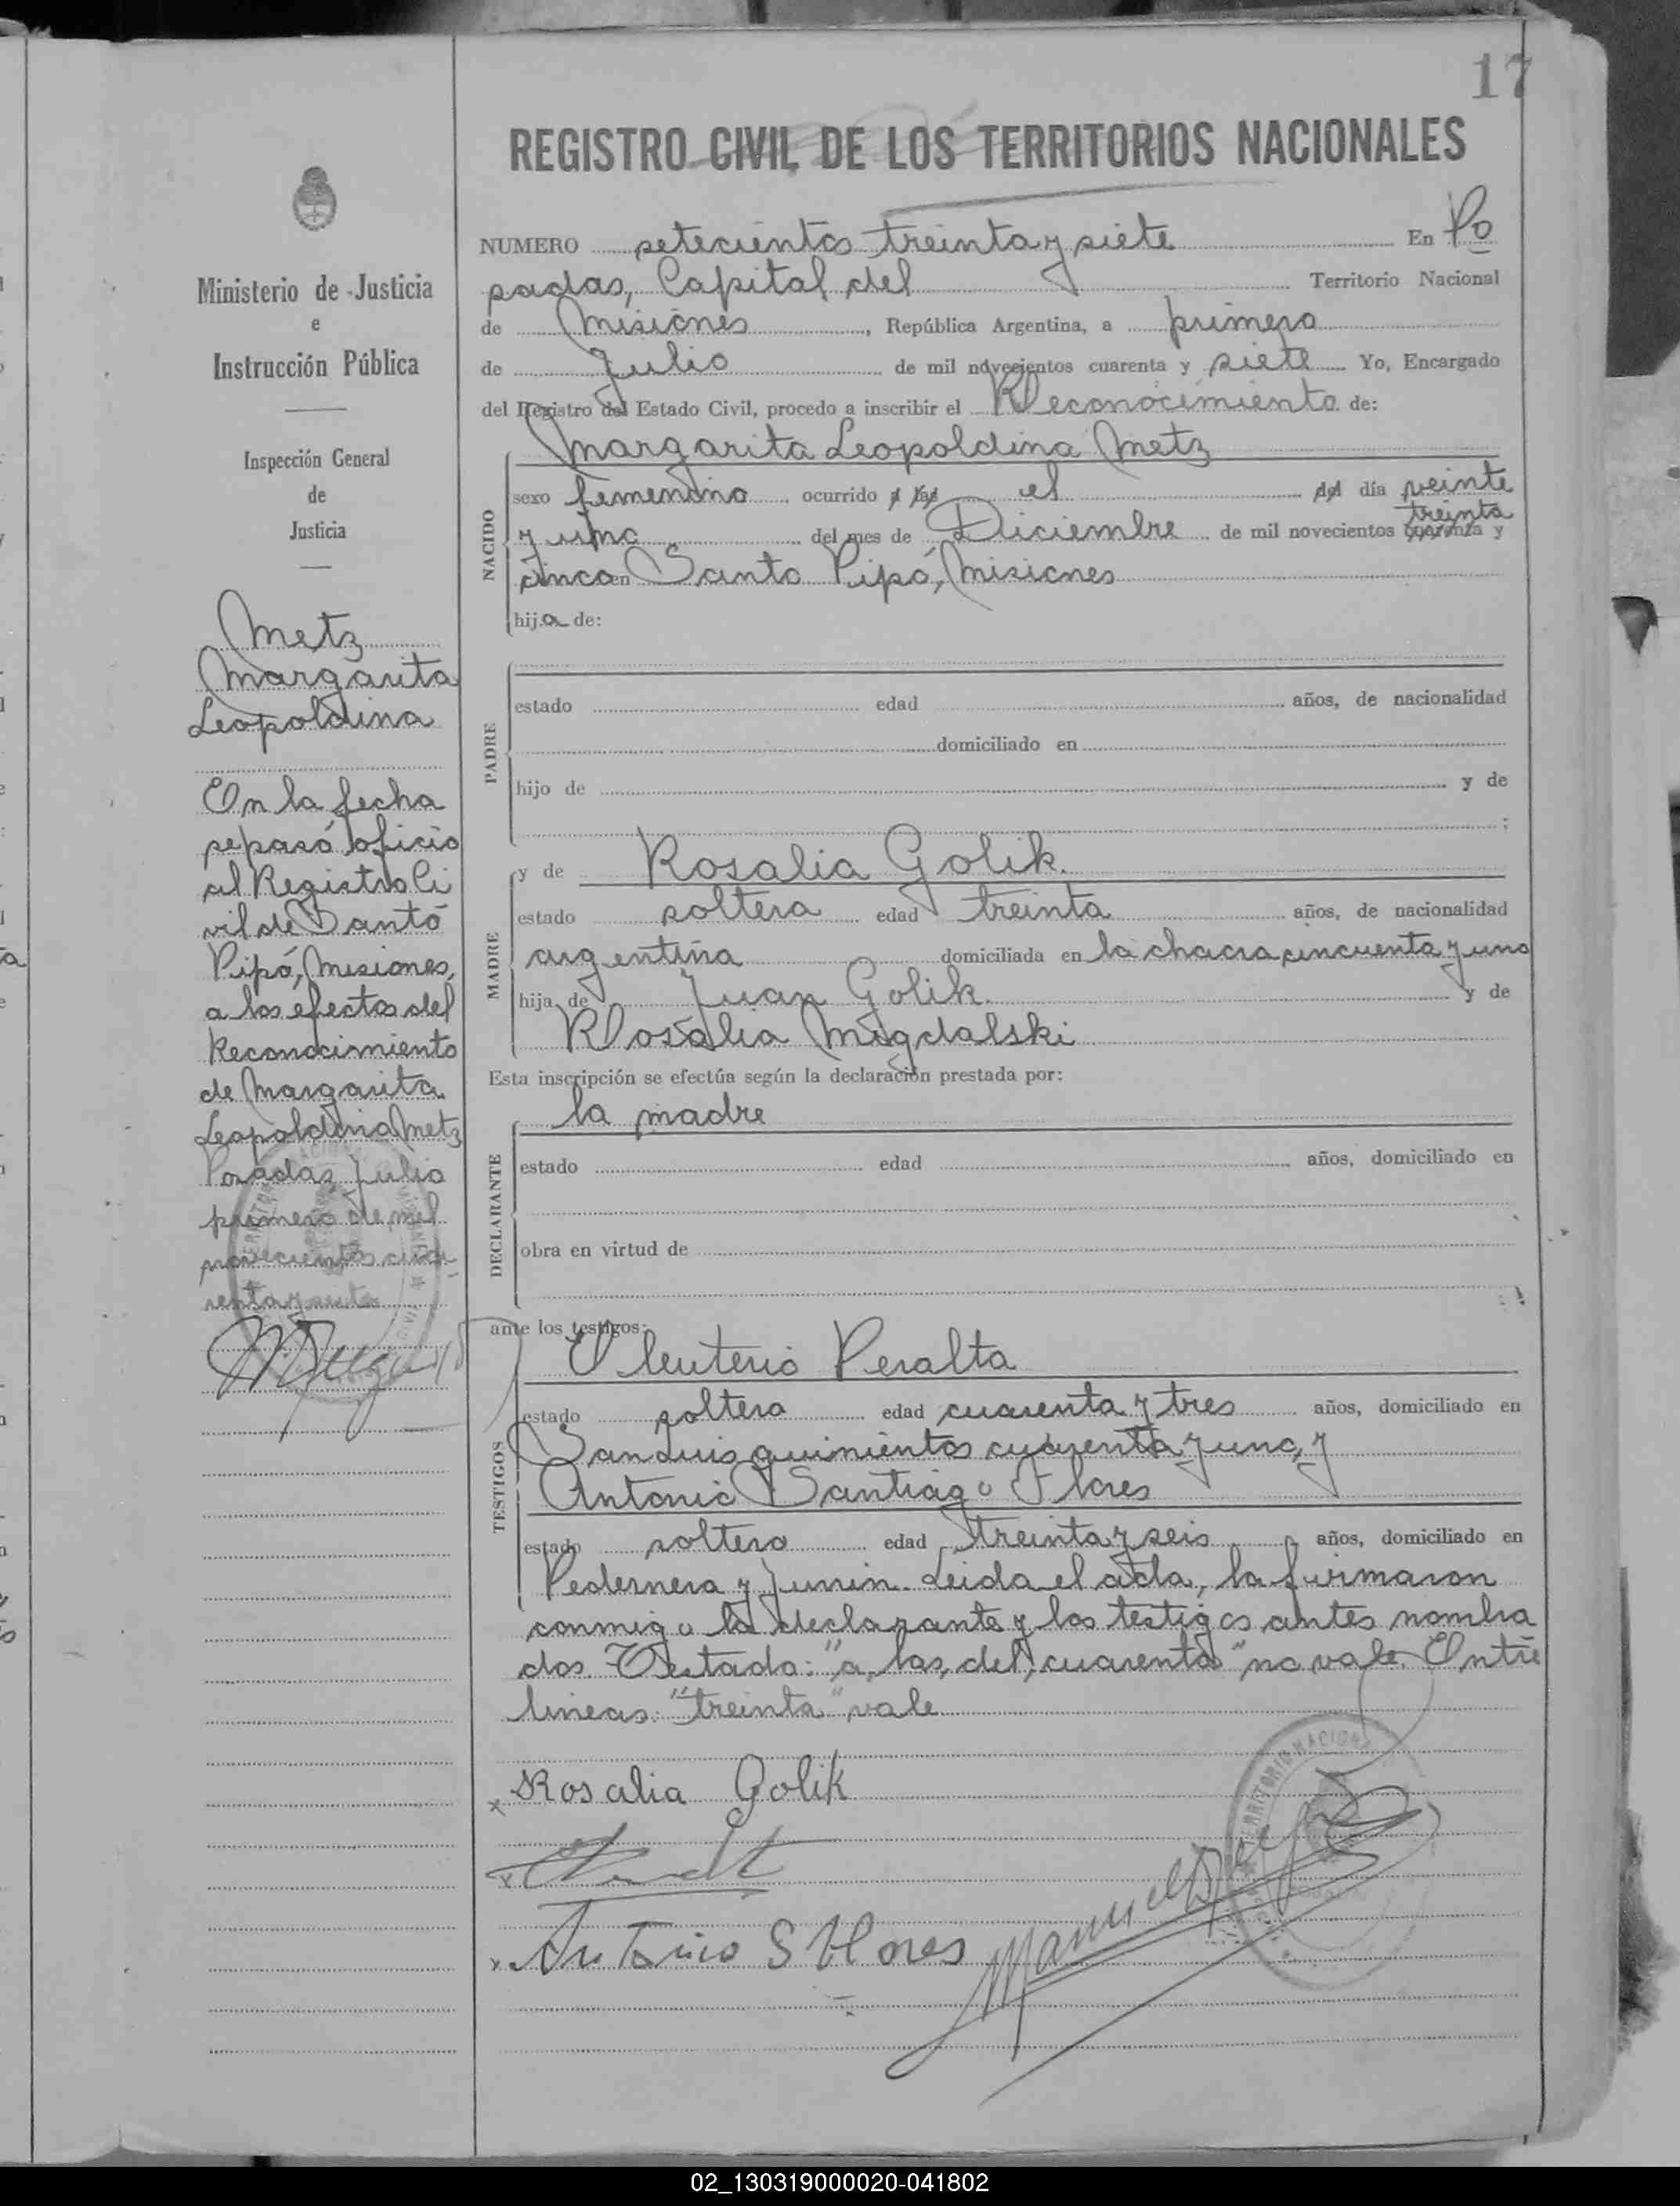 17
REGISTRO CIVIL DE LOS TERRITORIOS NACIONALES
Ministerio de Justicia
e
Instrucción Pública
Inspección General
de
Justicia
Metz
Margarita
Leopoldina
En la fecha
se pasó oficio
al Registro Ci
vil de Santo
Pipó, Misiones,
a los efectos del
Reconocimiento
de Margarita
Leopoldina Metz
Posadas, Julio
primero de mil
novecientos cua
renta y siete
NUMERO setecientos treinta y siete En Po
sadas, Capital del Territorio Nacional
de Misiones, República Argentina, a primero
de Julio de mil novecientos cuarenta y siete Yo, Encargado
del Registro del Estado Civil, procedo a inscribir el Reconocimiento de:
Margarita Leopoldina Metz
NACIDO
sexo femenino ocurrido a las el del día veinte
treinta
y uno del mes de Diciembre de mil novecientos cuarenta y
cinco en Santo Pipó, Misiones
hija de:
PADRE
estado edad años, de nacionalidad
domiciliado en
hijo de y de
;
MADRE
y de Rosalia Golik.
estado soltera edad treinta años, de nacionalidad
argentina domiciliada en la chacra cincuenta y uno
hija de Juan Golik. y de
Rosalia Migdalski
Esta inscripción se efectúa según la declaración prestada por:
la madre
DECLARANTE
estado edad años, domiciliado en
obra en virtud de
ante los testigos:
TESTIGOS
Eleuterio Peralta
estado soltero edad cuarenta y tres años, domiciliado en
San Luis quinientos cuarenta y uno, y
Antonio Santiago Flores
estado soltero edad treinta y seis años, domiciliado en
Pedernera y Junin. Leida el acta, la firmaron
conmigo la declarante y los testigos antes nombra
dos. Testado: "a, las, del, cuarenta" no vale. Entre
lineas: "treinta" vale
x Rosalia Golik
Antonio S Flores
02_130319000020-041802